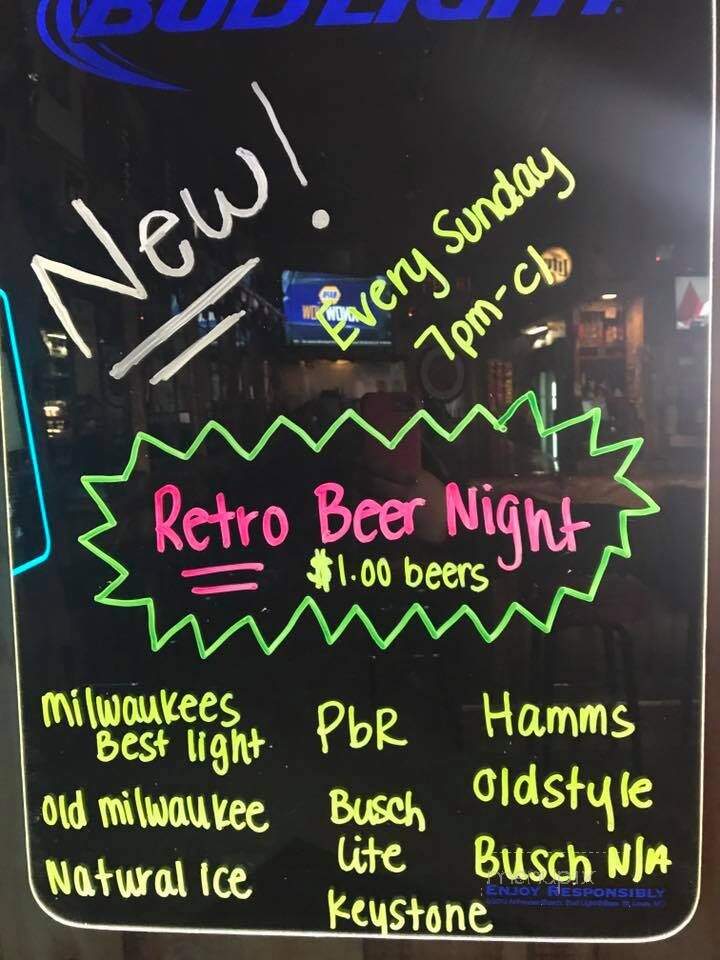 BUD LIGHT.
New!
Every Sunday
7pm-cl
Retro Beer Night
$1.00 beers
milwaukees
Best light
old milwaukee
Natural ice
PbR
Busch
Lite
Keystone
Hamms
oldstyle
Busch N/A
ENJOY RESPONSIBLY